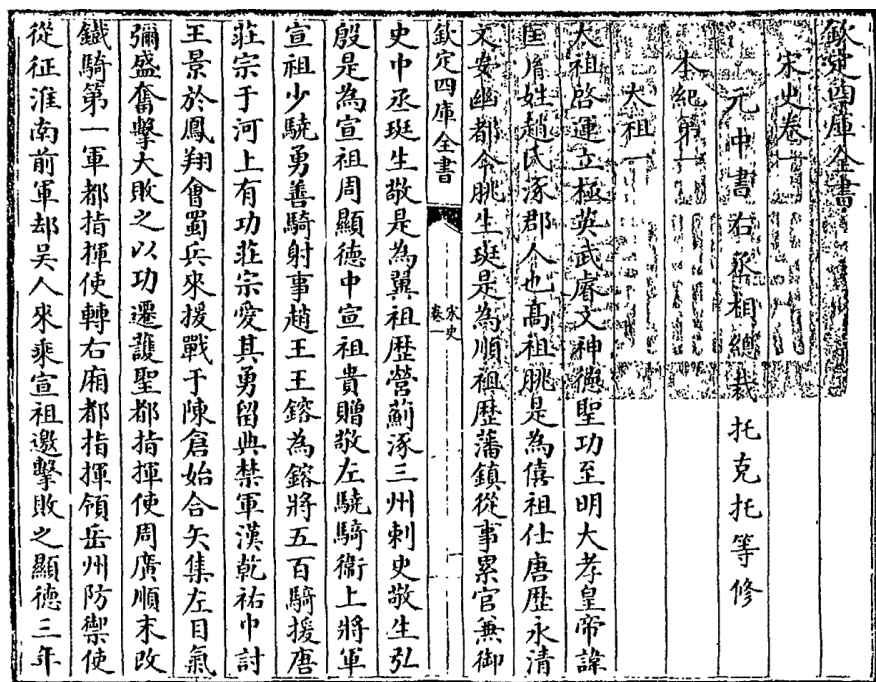 欽定四庫全書
宋史卷一
元中書右丞相總裁托克托等修
本紀第一
太祖一
太祖啓運立極英武睿文神德聖功至明大孝皇帝諱
匡胤姓趙氏涿郡人也高祖朓是為僖祖仕唐歷永清
文安幽都令朓生珽是為順祖歷藩鎮從事累官兼御
欽定四庫全書
宋史
卷一
史中丞珽生敬是為翼祖歷營薊涿三州刺史敬生弘
殷是為宣祖周顯德中宣祖貴贈敬左驍騎衞上將軍
宣祖少驍勇善騎射事趙王王鎔為鎔將五百騎援唐
莊宗于河上有功莊宗愛其勇留典禁軍漢乾祐中討
王景於鳳翔會蜀兵來援戰于陳倉始合矢集左目氣
彌盛奮擊大敗之以功遷護聖都指揮使周廣順末改
鐵騎第一軍都指揮使轉右廂都指揮領岳州防禦使
從征淮南前軍却吳人來乘宣祖邀擊敗之顯德三年